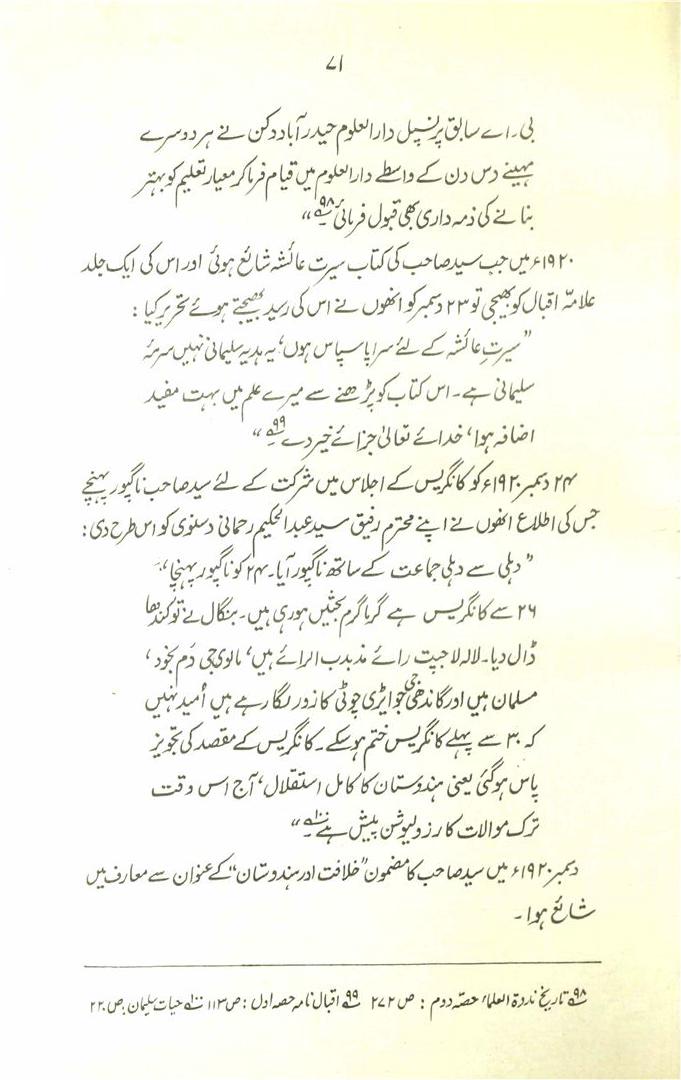 ۷۱
بی۔ اے سابق پرنسپل دارالعلوم حیدرآباد دکن نے ہر دوسرے
مہینے دس دن کے واسطے دارالعلوم میں قیام فرما کر معیار تعلیم کو بہتر
بنانے کی ذمہ داری بھی قبول فرمائی ۹۸؎"
۱۹۲۰ء میں جب سید صاحب کی کتاب سیرت عائشہ شائع ہوئی اور اس کی ایک جلد
علامہ اقبال کو بھیجی تو ۲۳ دسمبر کو انھوں نے اس کی رسید بھیجتے ہوئے تحریر کیا :
"سیرت عائشہ کے لئے سراپا سپاس ہوں، یہ ہدیہ سلیمانی نہیں سرمۂ
سلیمانی ہے۔ اس کتاب کو پڑھنے سے میرے علم میں بہت مفید
اضافہ ہوا، خدائے تعالیٰ جزائے خیر دے ۹۹؎"
۲۴ دسمبر ۱۹۲۰ء کو کانگریس کے اجلاس میں شرکت کے لئے سید صاحب ناگپور پہنچے
جس کی اطلاع انھوں نے اپنے محترم رفیق سید عبدالحکیم رحمانی دسنوی کو اس طرح دی :
"دہلی سے دہلی جماعت کے ساتھ ناگپور آیا۔ ۲۴ کو ناگپور پہنچا،
۲۶ سے کانگریس ہے گرما گرم بحثیں ہو رہی ہیں۔ بنگال نے تو کندھا
ڈال دیا۔ لالہ لاجپت رائے مذبذب الرائے ہیں، مالوی جی دم بخود،
مسلمان ہیں اور گاندھی جی جو ایڑی چوٹی کا زور لگا رہے ہیں اُمید نہیں
کہ ۳۰ سے پہلے کانگریس ختم ہو سکے۔ کانگریس کے مقصد کی تجویز
پاس ہو گئی یعنی ہندوستان کا کامل استقلال، آج اس وقت
ترک موالات کا رزولیوشن پیش ہے ۱۰۰؎"
دسمبر ۱۹۲۰ء میں سید صاحب کا مضمون "خلافت اور ہندوستان" کے عنوان سے معارف میں
شائع ہوا۔
۹۸؎ تاریخ ندوۃ العلماء حصہ دوم : ص ۲۷۲ ۹۹؎ اقبال نامہ حصہ اول : ص ۱۱۳ ۱۰۰؎ حیات سلیمان : ص ۲۲۰